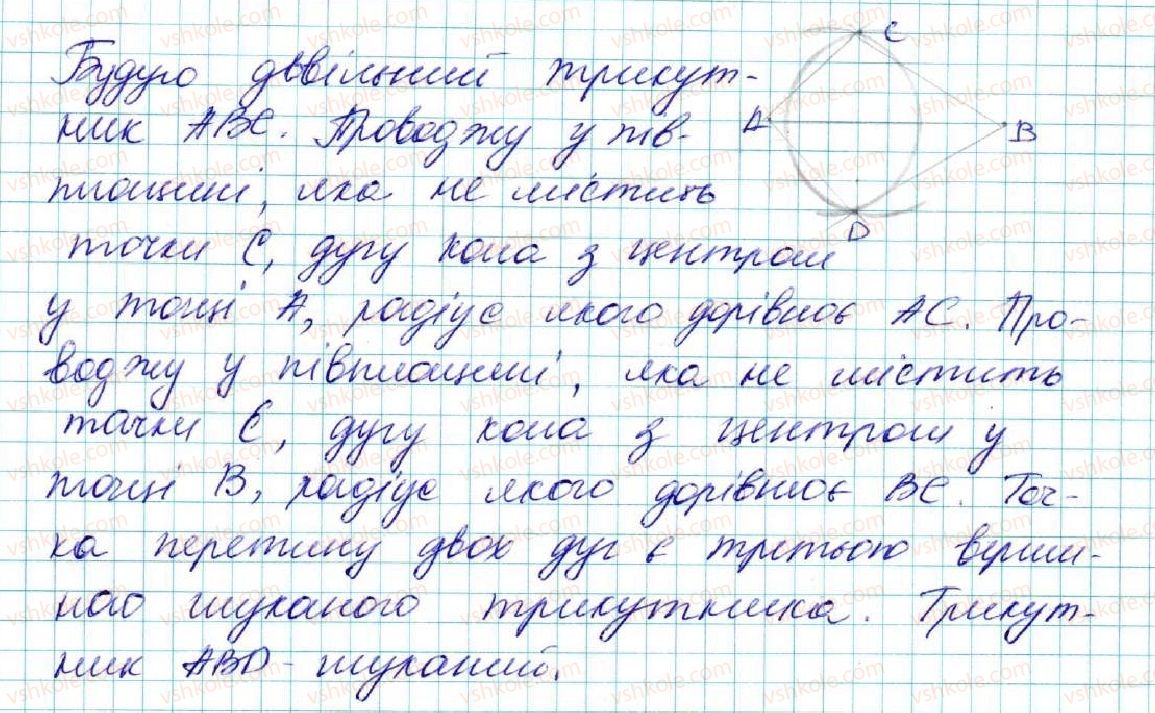 Будую дввільний трикут-
ник ABC. Проводжу у пів-
площині, яка не містить
точки C, дугу кола з центром
у точці A, радіус якого дорівнює AC. Про-
воджу у півплощині, яка не містить
точки C, дугу кола з центром у
точці B, радіус якого дорівнює BC. Точ-
ка перетину двох дуг є третьою верши-
ною шуканого трикутника. Трикут-
ник ABD - шуканий.
C
A
B
D
vshkole.com